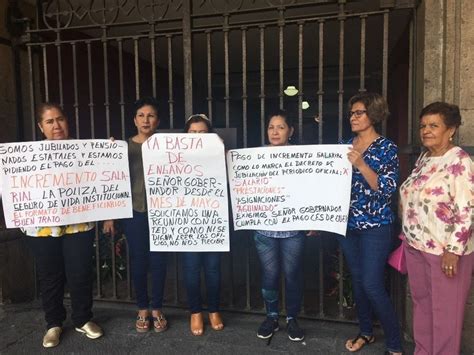 SOMOS JUBILADOS Y PENSIO-
NADAS ESTATALES Y ESTAMOS
PIDIENDO EL PAGO DEL...
INCREMENTO SALA-
RIAL LA POLIZA DEL
SEGURO DE VIDA INSTITUCIONAL
EL FORMATO DE BENEFICIARIOS
BUEN TRATO
YA BASTA
DE
ENGAÑOS
SEÑOR GOBER-
NADOR DESDE EL
MES DE MAYO
SOLICITAMOS UNA
REUNION CON US-
TED Y COMO NI SE
DIGNA LEER LOS OFI-
CIOS, NO NOS RECIBE
PAGO DE INCREMENTO SALARIAL
COMO LO MARCA EL DECRETO DE
JUBILACION DEL PERIODICO OFICIAL
"SALARIO
"PRESTACIONES"
"ASIGNACIONES
"AGUINALDO"
EXIGIMOS SEÑOR GOBERNADOR
CUMPLA CON EL PAGO